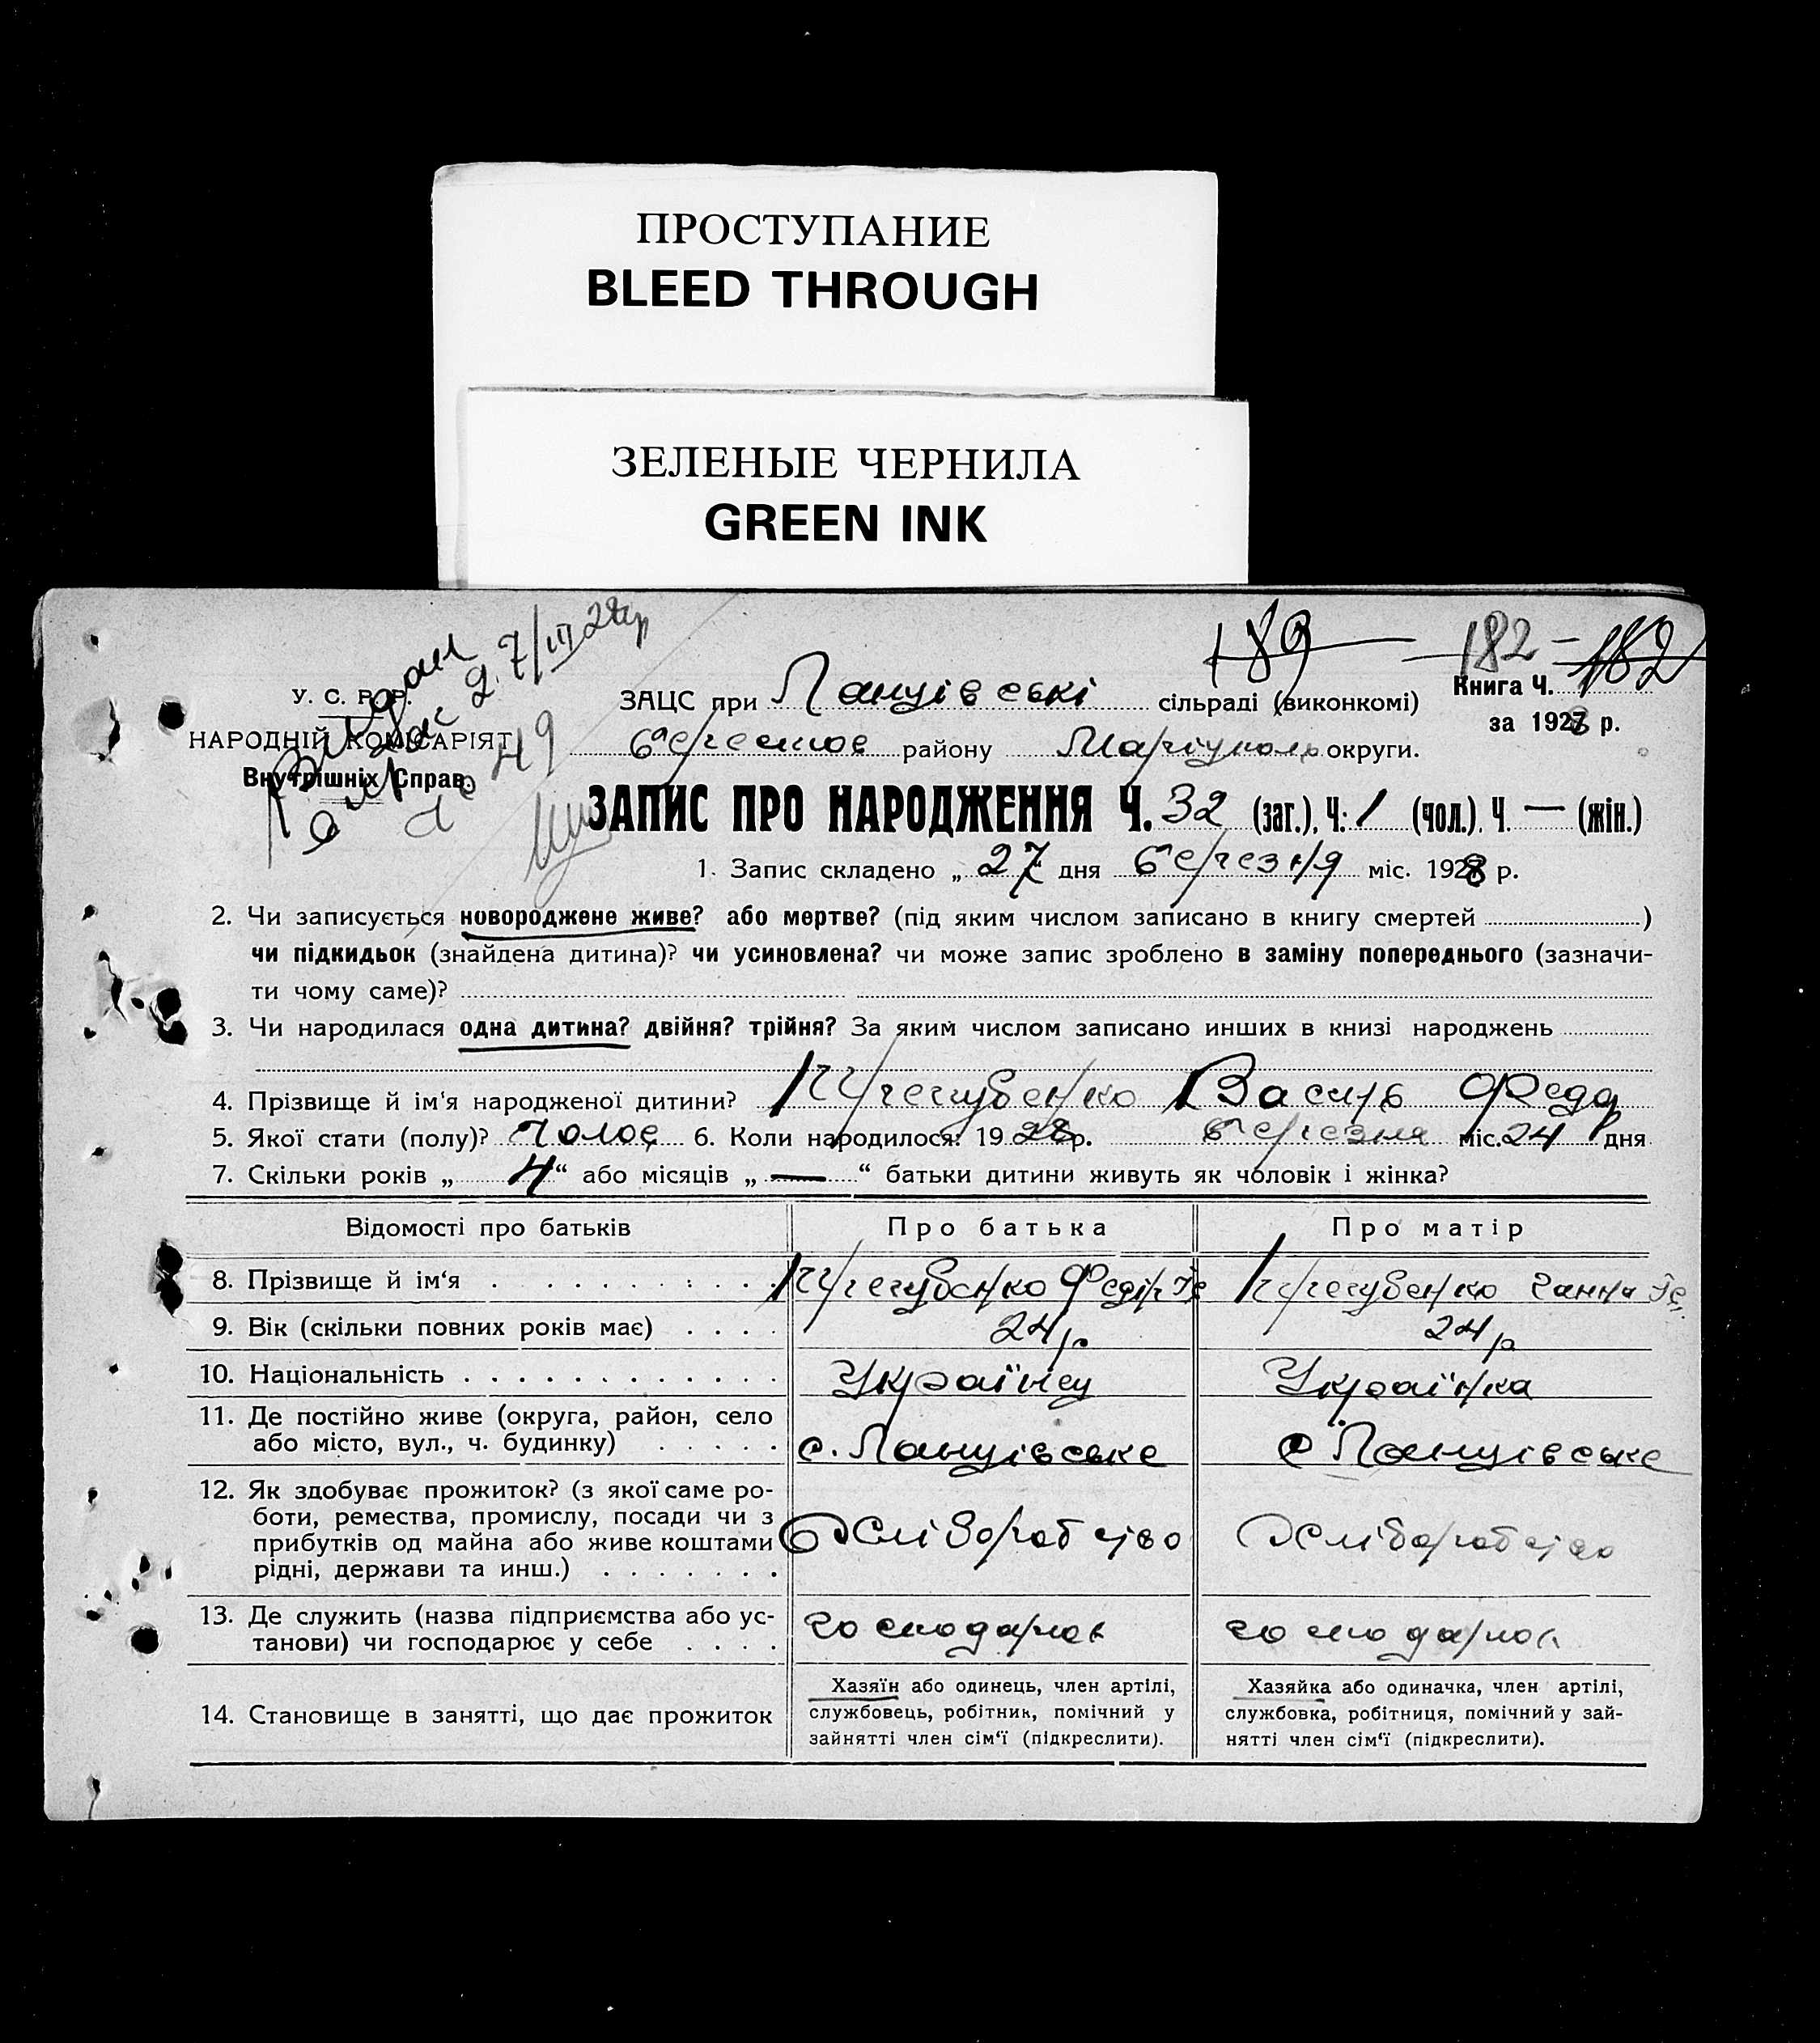 ПРОСТУПАНИЕ
BLEED THROUGH
ЗЕЛЕНЫЕ ЧЕРНИЛА
GREEN INK
189 182 182
У. С. Р. Р.
НАРОДНІЙ КОМІСАРІЯТ
Внутрішніх Справ.
27/III 28р
49
ЗАЦС при Ланцівські сільраді (виконкомі)
Книга Ч.
за 1928 р.
району Маріуполь округи.
ЗАПИС ПРО НАРОДЖЕННЯ Ч. 32 (заг.), Ч. 1 (чол.). Ч. — (жін.)
1. Запис складено „ 27 дня березня міс. 1928 р.
2. Чи записується новороджене живе? або мертве? (під яким числом записано в книгу смертей )
чи підкидьок (знайдена дитина)? чи усиновлена? чи може запис зроблено в заміну попереднього (зазначи-
ти чому саме)?
3. Чи народилася одна дитина? двійня? трійня? За яким числом записано инших в книзі народжень
4. Прізвище й ім'я народженої дитини? Василь Федор
5. Якої стати (полу)? Чолов 6. Коли народилося: 19 28 р. березня міс. 24 дня
7. Скільки років „ 4 “ або місяців „ — “ батьки дитини живуть як чоловік і жінка?
Відомості про батьків Про батька Про матір
8. Прізвище й ім'я Федір Ганна
9. Вік (скільки повних років має) 24 р 24 р
10. Національність Українец Українка
11. Де постійно живе (округа, район, село
або місто, вул., ч. будинку) с. Ланцівське с Ланцівське
12. Як здобуває прожиток? (з якої саме ро-
боти, ремества, промислу, посади чи з
прибутків од майна або живе коштами
рідні, держави та инш.) Хліборобство Хліборобство
13. Де служить (назва підприємства або ус-
танови) чи господарює у себе
14. Становище в занятті, що дає прожиток
Хазяїн або одинець, член артілі,
службовець, робітник, помічний у
зайнятті член сім'ї (підкреслити).
Хазяйка або одиначка, член артілі,
службовка, робітниця, помічний у зай-
нятті член сім'ї (підкреслити).